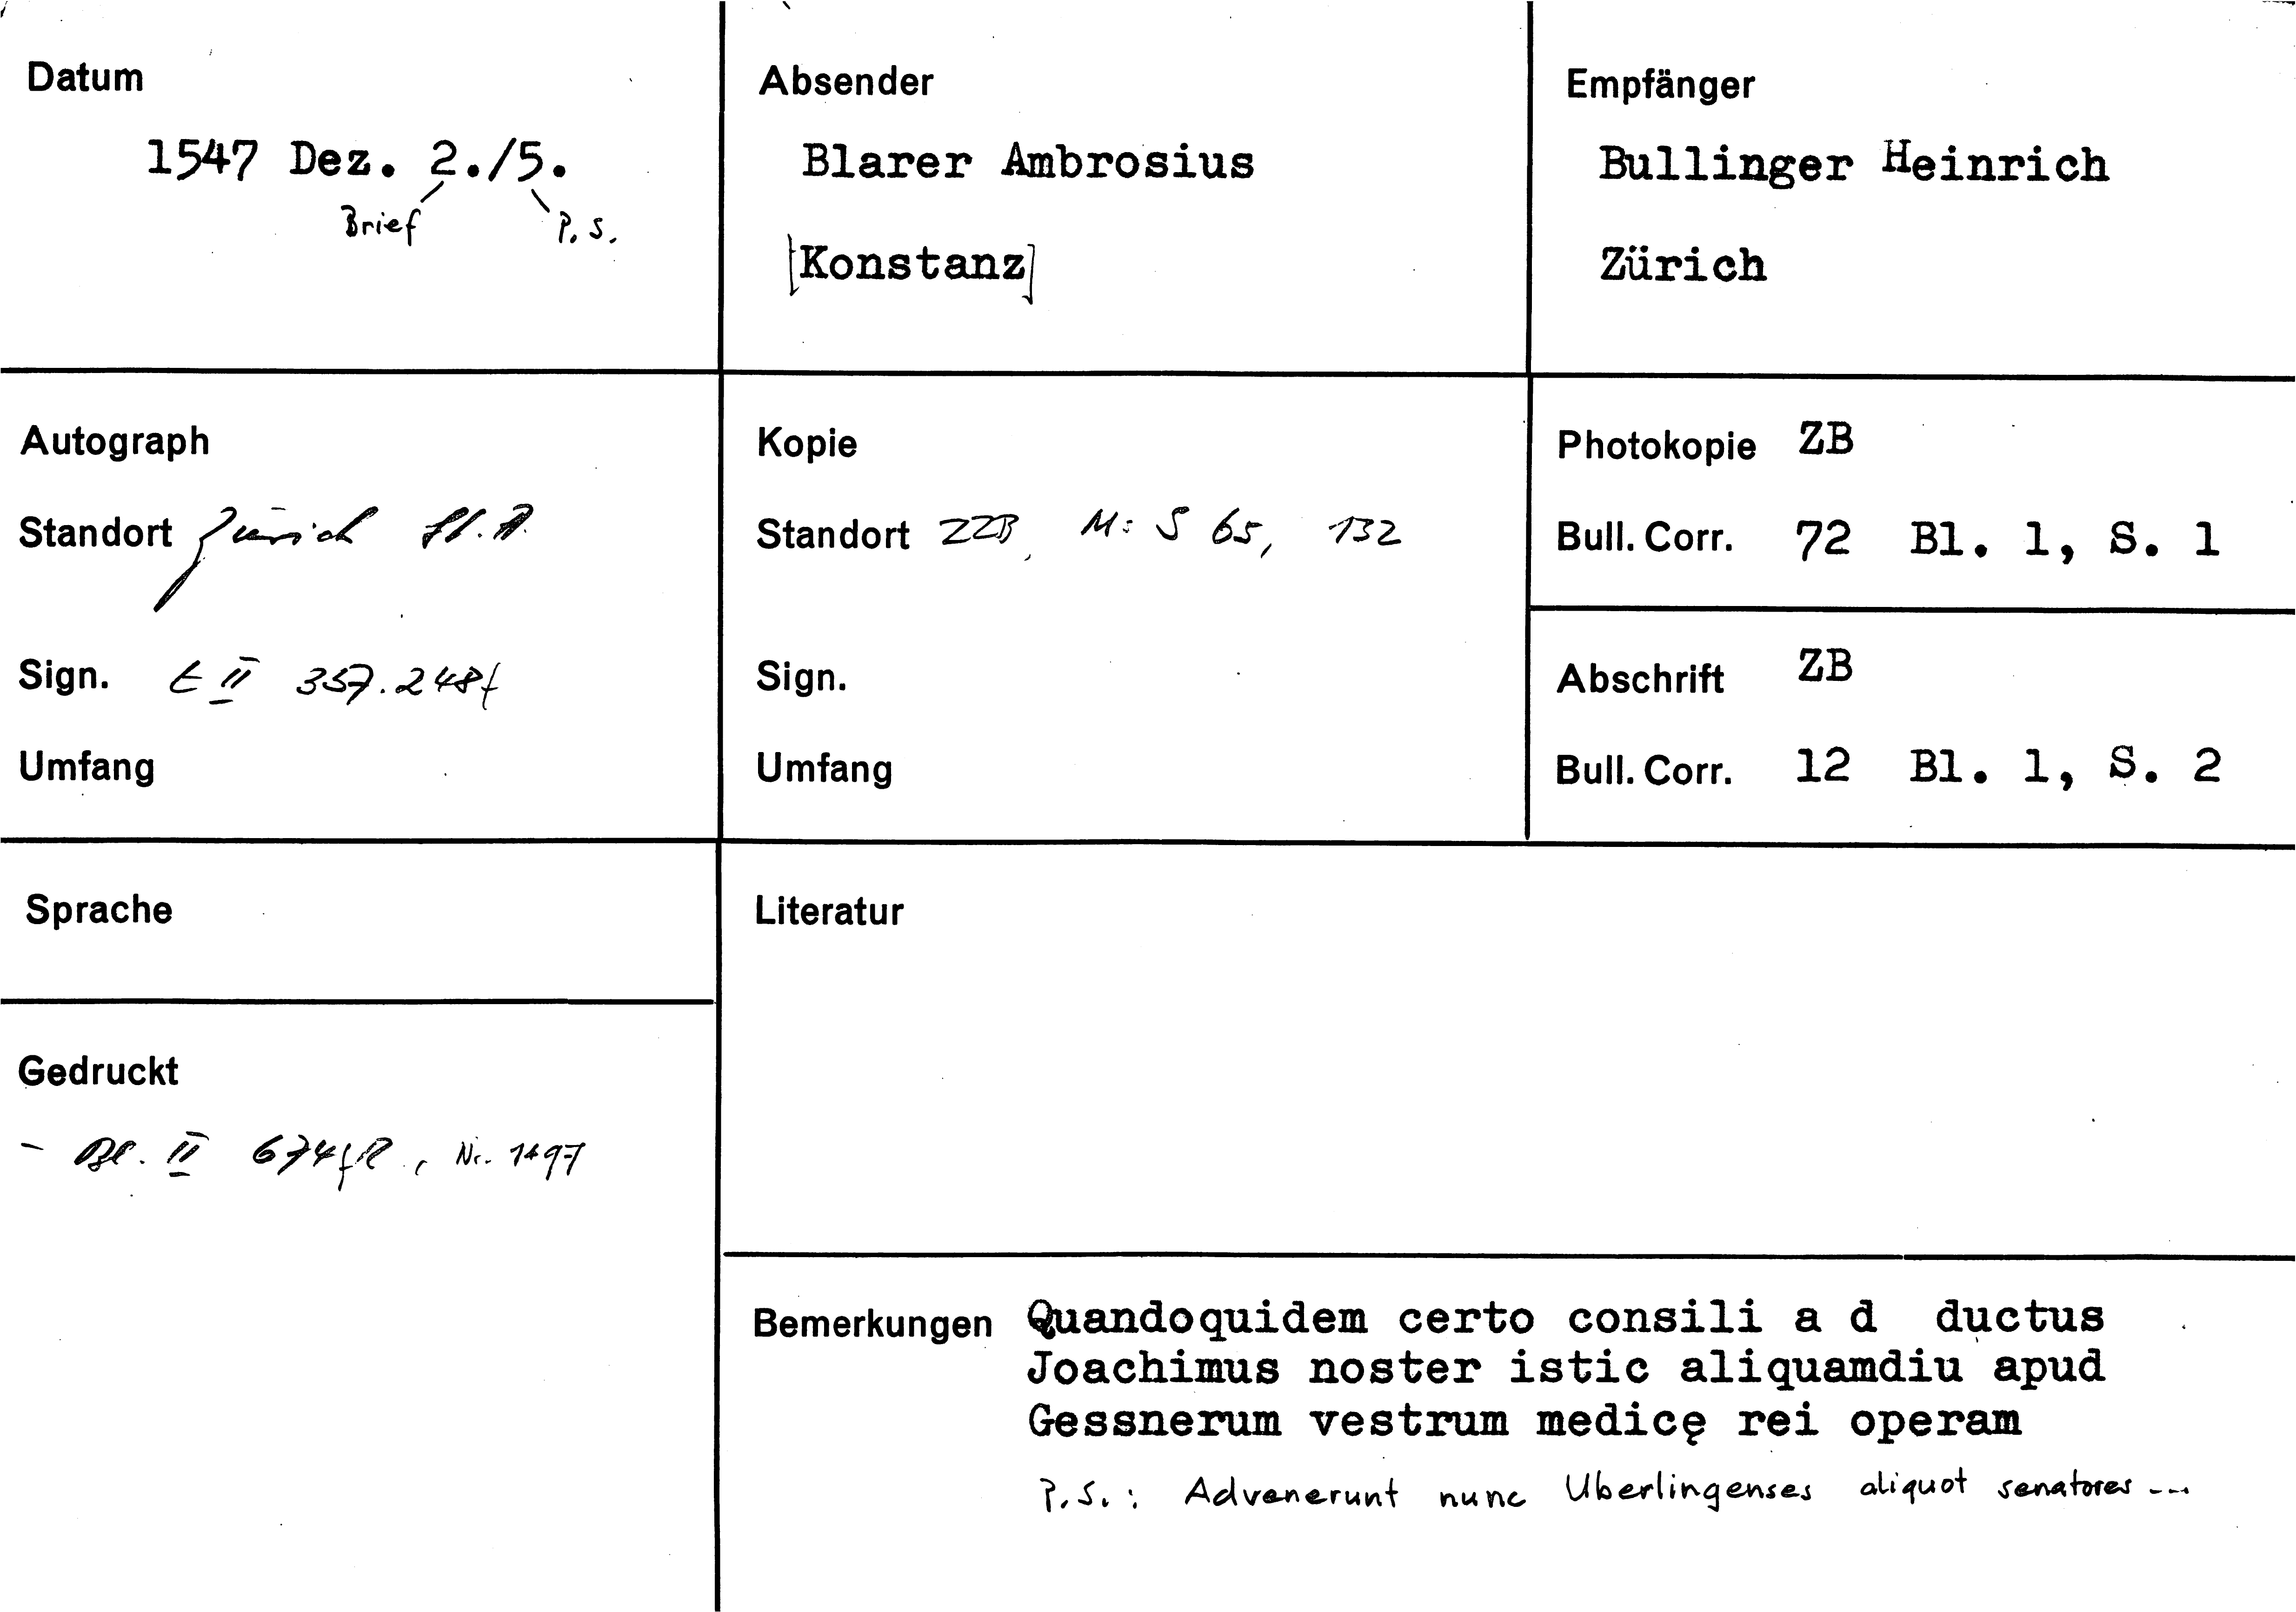 Datum
1547 Dez. 2./5.
Brief P.S.
Absender
Blarer Ambrosius
[Konstanz]
Empfänger
Bullinger Heinrich
Zürich
Autograph
Standort Zürich St.A.
Sign. E II 357.248f
Umfang
Kopie
Standort ZZB, Ms S 65, 132
Sign.
Umfang
Photokopie ZB
Bull. Corr. 72 Bl. 1, S. 1
Abschrift ZB
Bull. Corr. 12 Bl. 1, S. 2
Sprache
Gedruckt
- Bl. II 674ff, Nr. 1497
Literatur
Bemerkungen Quandoquidem certo consili a d ductus
Joachimus noster istic aliquamdiu apud
Gessnerum vestrum medicę rei operam
P.S.: Advenerunt nunc Uberlingenses aliquot senatores ---